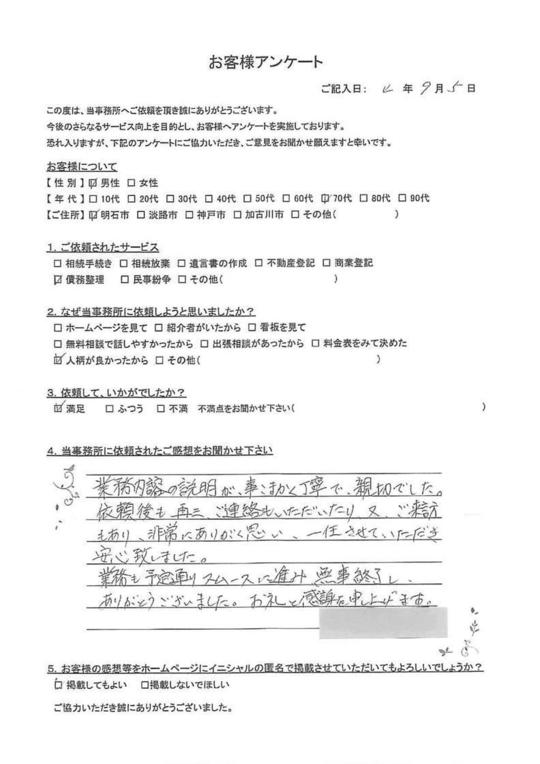 お客様アンケート
ご記入日： 4 年 9 月 5 日
この度は、当事務所へご依頼を頂き誠にありがとうございます。
今後のさらなるサービス向上を目的とし、お客様へアンケートを実施しております。
恐れ入りますが、下記のアンケートにご協力いただき、ご意見をお聞かせ願えますと幸いです。
お客様について
【 性 別 】☑ 男性 □ 女性
【 年 代 】□ 10代 □ 20代 □ 30代 □ 40代 □ 50代 □ 60代 ☑70代 □ 80代 □ 90代
【ご住所】☑明石市 □ 淡路市 □ 神戸市 □ 加古川市 □ その他( )
1. ご依頼されたサービス
□ 相続手続き □ 相続放棄 □ 遺言書の作成 □ 不動産登記 □ 商業登記
☑ 債務整理 □ 民事紛争 □ その他( )
2. なぜ当事務所に依頼しようと思いましたか？
□ ホームページを見て □ 紹介者がいたから □ 看板を見て
□ 無料相談で話しやすかったから □ 出張相談があったから □ 料金表をみて決めた
☑ 人柄が良かったから □ その他( )
3. 依頼して、いかがでしたか？
☑ 満足 □ ふつう □ 不満 不満点をお聞かせ下さい( )
4. 当事務所に依頼されたご感想をお聞かせ下さい
業務内容の説明が、事こまかく丁寧で、親切でした。
依頼後も再三、ご連絡もいただいたり 又、ご来訪
もあり、非常にありがたく思い、一任させていただき
安心致しました。
業務も予定通りスムースに進み 無事終了し、
ありがとうございました。お礼と感謝を申し上げます。
5. お客様の感想等をホームページにイニシャルの匿名で掲載させていただいてもよろしいでしょうか？
☑ 掲載してもよい □掲載しないでほしい
ご協力いただき誠にありがとうございました。